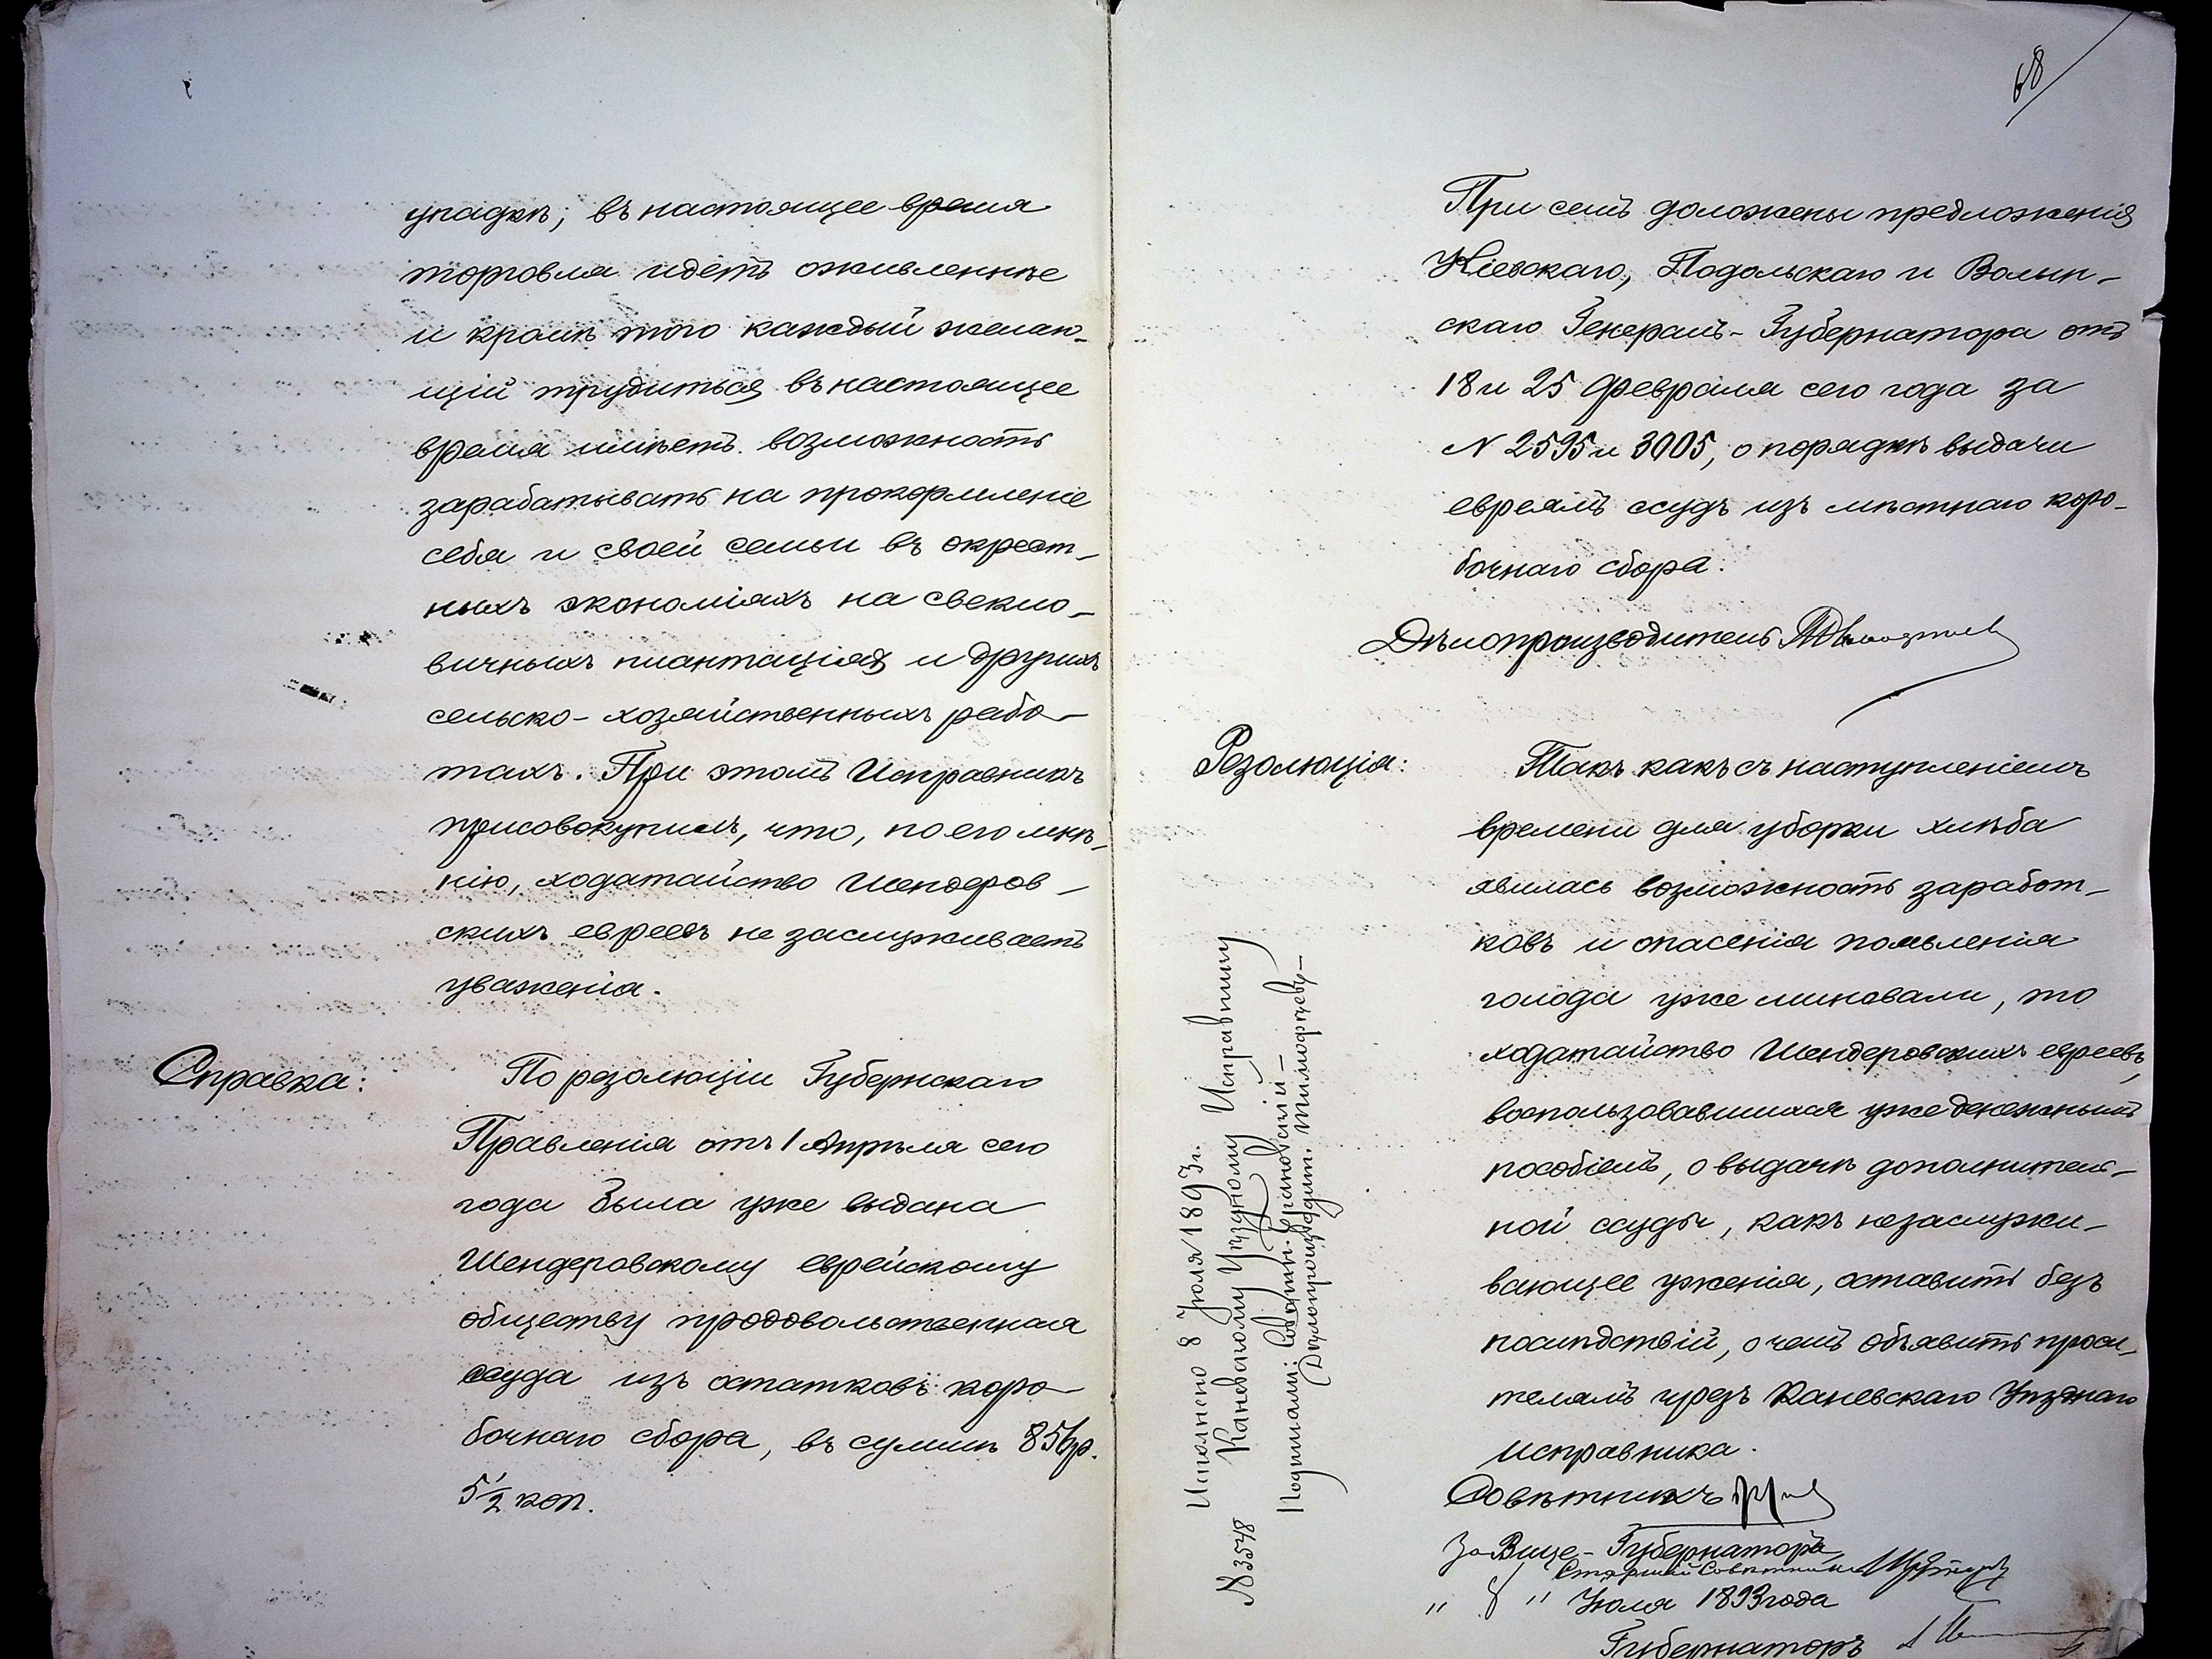 упадкѣ; въ настоящее время
торговля идетъ оживленнѣе
и кромѣ того каждый желаю-
щій трудиться въ настоящее
время имѣетъ возможность
зарабатывать на прокормленіе
себя и своей семьи въ окрест-
ныхъ экономіяхъ на свекло-
вичныхъ плантаціяхъ и другихъ
сельско-хозяйственныхъ рабо-
тахъ. При этомъ Исправникъ
присовокупилъ, что, по его мнѣ-
нію, ходатайство Шендеров-
скихъ евреевъ не заслуживаетъ
уваженія.
Справка:
По резолюціи Губернскаго
Правленія отъ 1 Апрѣля сего
года была уже выдана
Шендеровскому еврейскому
обществу продовольственная
ссуда изъ остатковъ коро-
бочнаго сбора, въ суммѣ 856 р.
5 1/2 коп.
68
При семъ доложены предложенія
Кіевскаго, Подольскаго и Волын-
скаго Генералъ-Губернатора отъ
18 и 25 Февраля сего года за
N 2595 и 3005, о порядкѣ выдачи
евреямъ ссудъ изъ мѣстнаго коро-
бочнаго сбора.
Дѣлопроизводитель
Резолюція:
Такъ какъ съ наступленіемъ
времени для уборки хлѣба
явилась возможность заработ-
ковъ и опасенія появленія
голода уже миновали, то
ходатайство Шендеровскихъ евреевъ,
воспользовавшихся уже денежнымъ
пособіемъ, о выдачѣ дополнитель-
ной ссуды, какъ незаслужи-
вающее уженія, оставить безъ
послѣдствій, о чемъ объявить проси-
телямъ чрезъ Каневскаго Уѣзднаго
исправника.
Совѣтникъ
За Вице-Губернатора,
Старшій Совѣтникъ
" 8 " Іюля 1893 года
Губернаторъ
Исполнено 8 Іюля 1893 г.
№ 3548 Каневскому Уѣздному Исправнику
Подписали: Совѣтн.
Дѣлопроизводит.